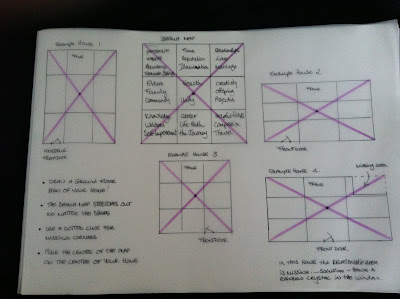 Example House 1
BAGUA MAP
Wealth
Fame
Reputation
Illumination
Relationships
Love
Marriage
Family
Community
Health
Unity
Creativity
Offspring
Projects
Knowledge
Wisdom
Self-improvement
Career
Life Path
The Journey
Helpful Folks
Compassion
Travel
FAME
FRONTDOOR
Example House 2
FAME
FRONTDOOR
Example House 3
FAME
FRONTDOOR
Example House 4
missing area
FAME
FRONT DOOR
• DRAW A GROUND FLOOR
PLAN OF YOUR HOME!
• THE BAGUA MAP STRETCHES OUT
NO MATTER THE SHAPE
• USE A DOTTED LINE FOR
MISSING CORNERS
• PLACE THE CENTRE OF THE MAP
ON THE CENTRE OF YOUR HOME
IN THIS HOUSE THE RELATIONSHIP AREA
IS MISSING
SOLUTION - HANG A
RAINBOW CRYSTAL IN THE WINDOW.